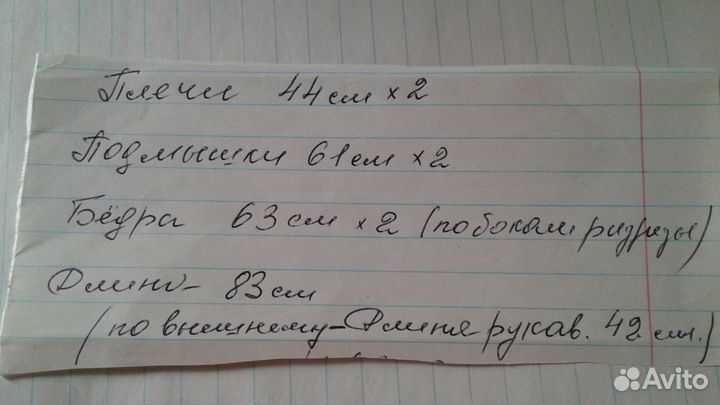 Плечи 44см × 2
Подмышки 61см × 2
Бёдра 63см × 2 (по бокам разрезы)
Длина - 83см
(по внешнему - Длина рукав. 42 см.)
Avito